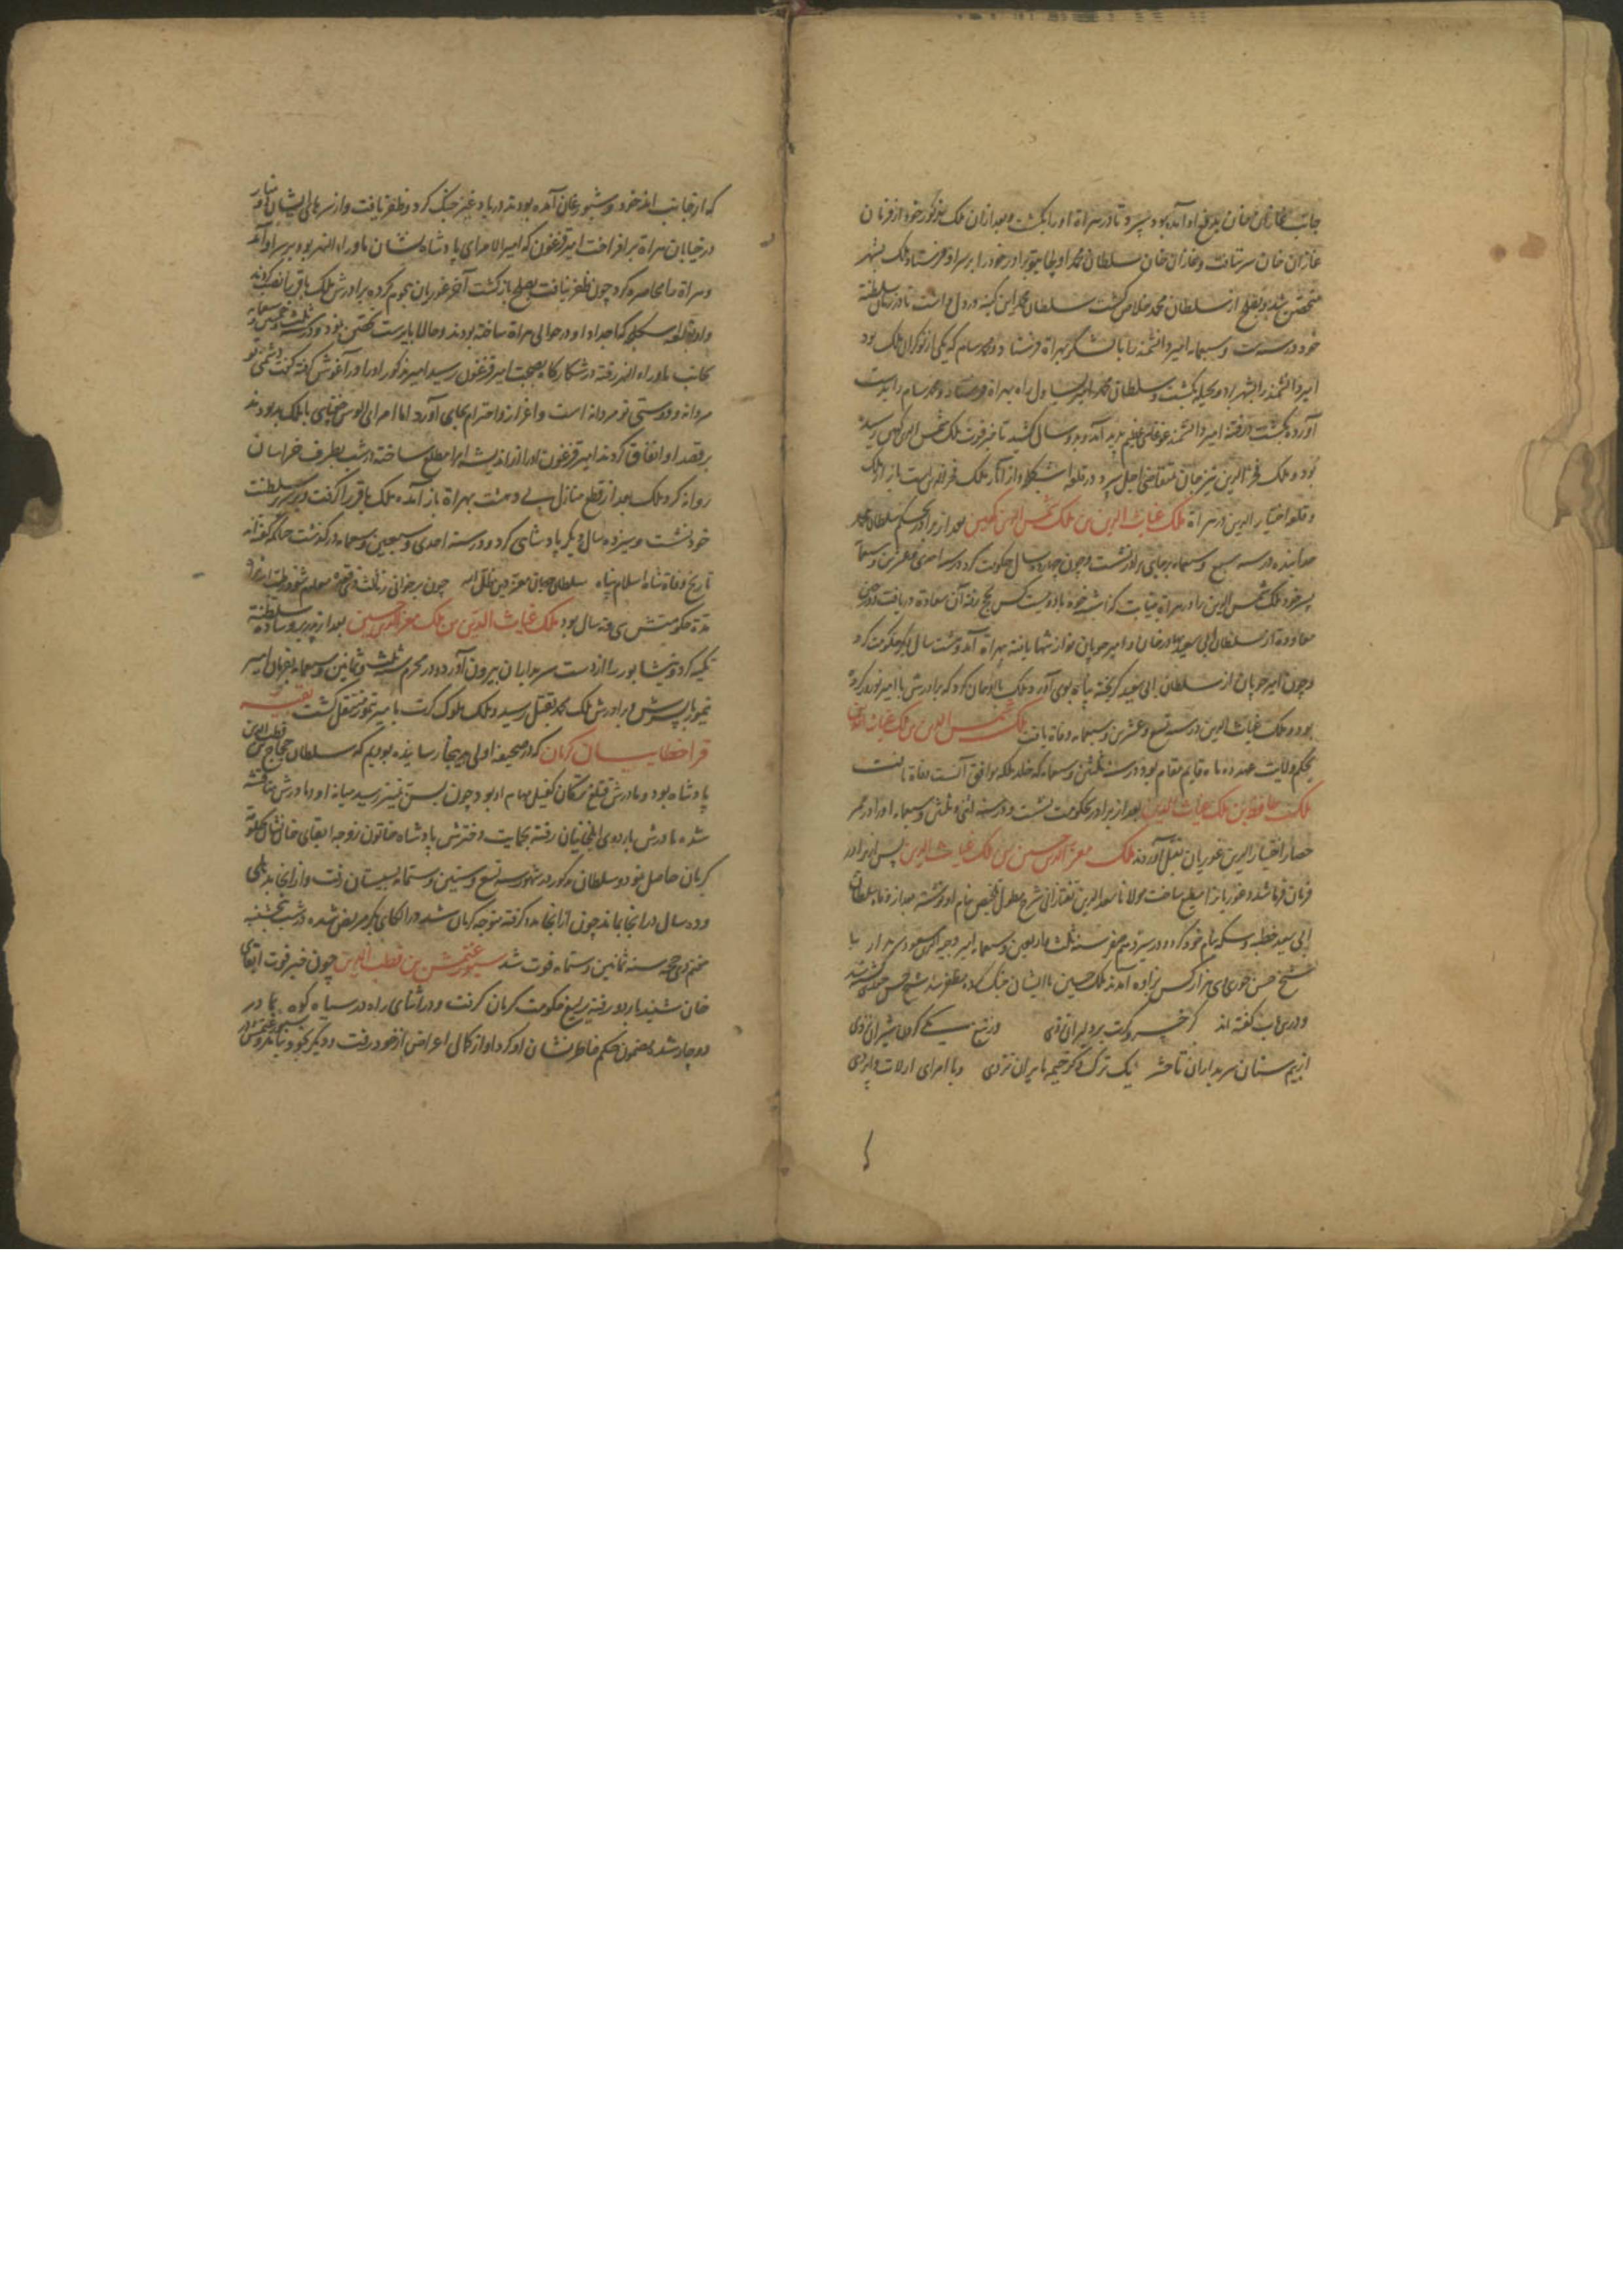 جانب غازان خان بدفع او آمده بود سپرد تا در هراة او را بکشت و بعد از آن ملک مذکور خود از فرمان
غازان خان سر بتافت و غازان خان سلطان محمد اولجایتو برادر خود را بر سر او فرستاد ملک بشهر
متحصن شد و بصلح از سلطان محمد خلاص گشت سلطان محمد این کینه در دل داشت تا در زمان سلطنة
خود در سنه ست و سبعمایه امیر دانشمند را با لشکر بهراة فرستاد و محمد سام که یکی از نوکران ملک بود
امیر دانشمند را بشهر برده بحیله بکشت و سلطان محمد امیر یساول را بهراة فرستاد و محمد سام را بدست
آورده بکشت
بود و ملک فخر الدین نیز بمتقاضی اجل سپرد و در قلعه اشکلجه و از آثار ملک فخر الدین است بازار ملک
و قلعه اختیار الدین در هراة ملک غیاث الدین بن ملک شمس الدین کهین بعد از برادر بحکم سلطان محمد
خدابنده در سنه سبع و سبعمایه بجای برادر نشست و چون چهارده سال حکومت کرد در سنه احدی و عشرین و سبعمایه
پسر خود ملک شمس الدین را در هراة بنیابت گذاشته خود با دویست کس بحج رفته آن سعادة دریافت و در حین
معاودة از سلطان ابی سعید بهادر خان و امیر چوپان نوازشها یافته بهراة آمد و هشت سال دیگر حکومت کرد
و چون امیر چوپان از سلطان ابی سعید گریخته پناه بوی آورد ملک با او همان کرد که برادرش با امیر نوروز کرده
بود و ملک غیاث الدین در سنه تسع و عشرین و سبعمایه وفاة یافت ملک شمس الدین بن ملک غیاث الدین
بحکم ولایت عهد ده ماه قایم مقام بود در سنه ثلثین و سبعمایه که خلد ملکه موافق آنست وفاة یافت
ملک حافظ بن ملک غیاث الدین بعد از برادر بحکومت نشست و در سنه اثنی و ثلثین و سبعمایه او را در ممر
حصار اختیار الدین غوریان بقتل آوردند ملک معز الدین حسین بن ملک غیاث الدین پس از برادر
فرمان فرما شد و غوریانرا مطیع ساخت مولانا سعد الدین تفتازانی شرح مطول تلخیص بنام او نوشته بعد از وفاة سلطان
ابی سعید خطبه و سکه بنام خود کرد و در سیزدهم صفر سنه ثلث و اربعین و سبعمایه امیر وجیه الدین مسعود سربدار با
شیخ حسن جوری با سی هزار کس بزاوه آمدند ملک حسین با ایشان جنگ کرده مظفر شد شیخ حسن جوری کشته شد
و در این باب گفته اند گر خسرو کرت بر دلیران نزدی وز تیغ یلی گردن شیران نزدی
از بیم سنان سربداران تا حشر یک ترک دگر خیمه بایران نزدی و با امرای ارلات و اپردی
که از جانب اندخود و شبورغان آمده بودند در بادغیس جنگ کرد و ظفر یافت و از سرهای ایشان دو منار
در خیابان هراة برافراخت امیر قزغون که امیر الامرای پادشاه نشان ماوراء النهر بود بر سر او آمد
و هراة را محاصره کرد چون ظفر نیافت بصلح بازگشت آخر غوریان هجوم کرده برادرش ملک باقر را نصب کردند
و او بقلعه اشکلجه که اجداد او در حوالی هراة ساخته بودند و حالا بایرست متحصن بود و در سنه ثلث و خمسین و سبعمایه
بجانب ماوراء النهر رفته در شکارگاه بصحبت امیر قزغون رسید امیر مذکور او را در آغوش گرفته گفت دشمنی تو
مردانه و دوستی تو مردانه است و اعزاز و احترام بجای آورد اما امرای الوس جغتای با ملک بد بودند
بر قصد او اتفاق کردند امیر قزغون او را از اندیشه امرا مطلع ساخته در شب بطرف خراسان
روانه کرد ملک بعد از قطع منازل بی دهشت بهراة باز آمده ملک باقر را گرفت و بر سریر سلطنت
خود نشست و سیزده سال دیگر پادشاهی کرد و در سنه احدی و سبعین و سبعمایه درگذشت چنانکه گفته اند
تاریخ وفاة شاه اسلام پناه سلطان جهان معز دین ظل اله
مدة حکومتش سی و نه سال بود ملک غیاث الدین بن ملک معز الدین حسین بعد از پدر بر وساده سلطنة
تکیه کرد و نیشابور را از دست سربداران بیرون آورد و در محرم سنه ثلث و ثمانین و سبعمایه بفرمان امیر
تیمور با پسرش و برادرش ملک محمد بقتل رسید و ملک ملوک کرت با امیر تیمور منتقل گشت بقیه
قراخطاییان کرمان که در صحیفه اولی بدینجا رسانیده بودیم که سلطان حجاج بن قطب الدین
پادشاه بود و مادرش قتلغ ترکان کفیل مهام او بود چون بسن تمییز رسید میانه او و مادرش مناقشه
شده مادرش باردوی ایلخانیان رفته بحمایت دخترش پادشاه خاتون زوجه ابقای خان نشان حکومة
کرمان حاصل نمود و سلطان مذکور در شهور سنه تسع و ستین و ستمایه بسیستان رفت و از آنجا بدهلی
و ده سال در آنجا بماند چون از آنجا مدد گرفته متوجه کرمان شد در الکای بکر مریض شده در شب پنجشنبه
ذی حجه سنه ثمانین و ستمایه فوت شد سیورغتمش بن قطب الدین چون خبر فوت ابقای
خان شنید باردو رفته یرلیغ حکومت کرمان گرفت و در اثنای راه در سیاه کوه بمادر
دوچار شد مضمون حکم خاطر نشان او کرد او از کمال اعراض از خود رفت